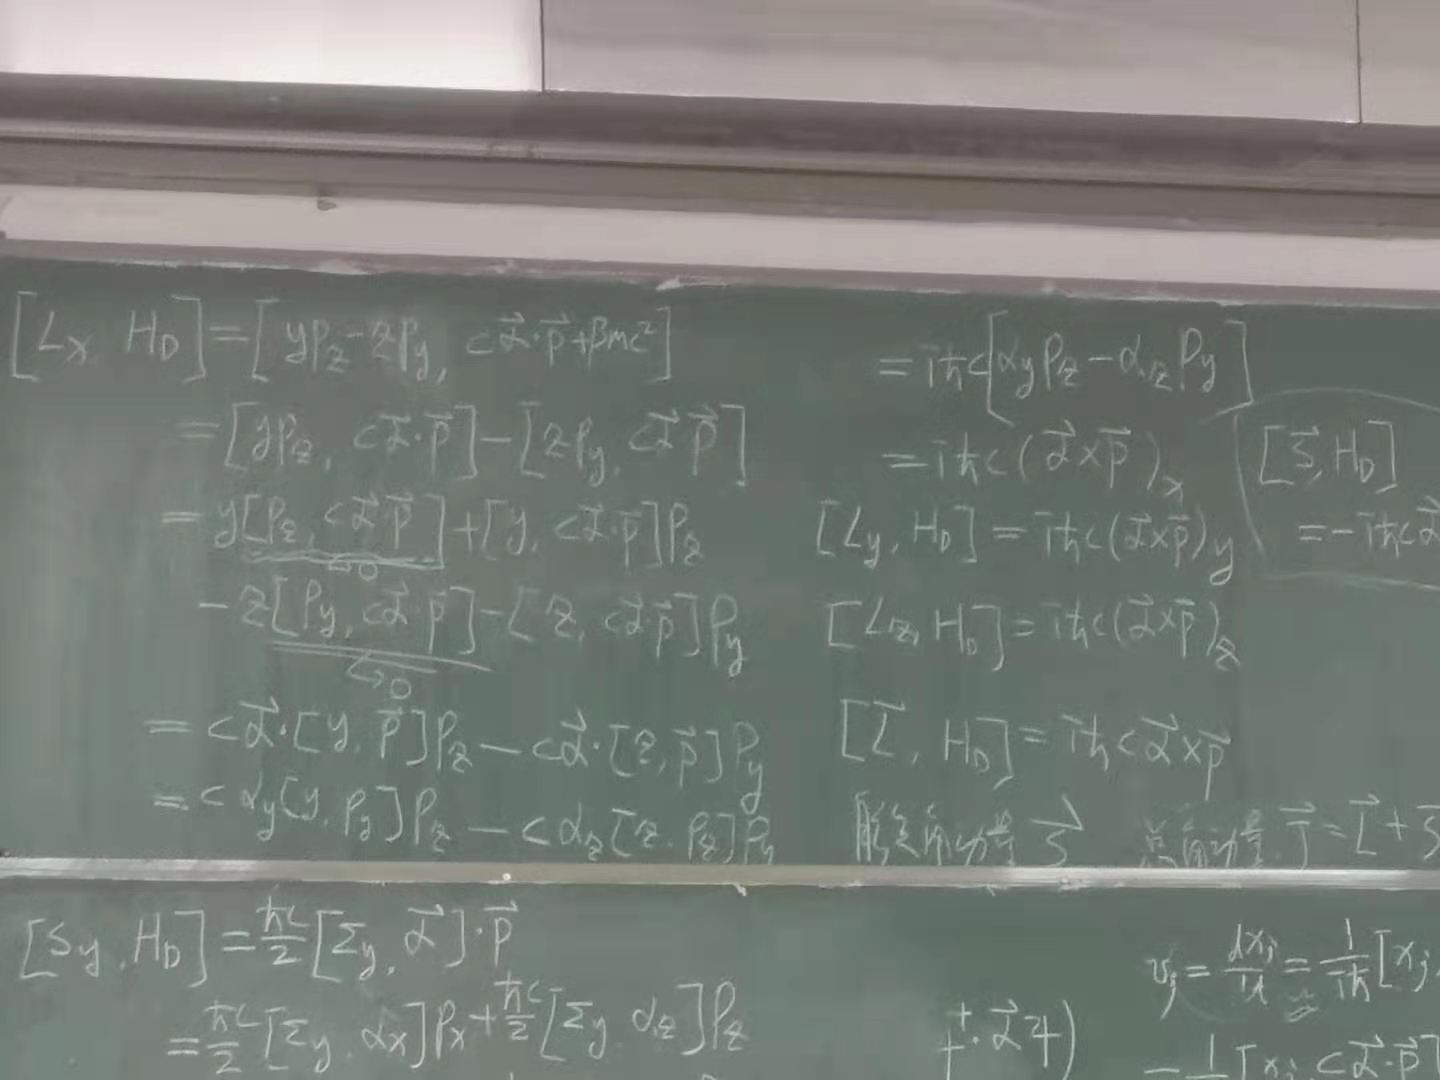 [Lx, HD] = [ypz - zpy, cα⃗·p⃗ + βmc²]
= [ypz, cα⃗·p⃗] - [zpy, cα⃗·p⃗]
= y[pz, cα⃗·p⃗] + [y, cα⃗·p⃗]pz
→0
- z[py, cα⃗·p⃗] - [z, cα⃗·p⃗]py
↪0
= cα⃗·[y, p⃗]pz - cα⃗·[z, p⃗]py
= cαy[y, py]pz - cαz[z, pz]py
= iħc[αypz - αzpy]
= iħc(α⃗×p⃗)x
[Ly, HD] = iħc(α⃗×p⃗)y
[Lz, HD] = iħc(α⃗×p⃗)z
[L⃗, HD] = iħcα⃗×p⃗
角动量 S⃗ 总角动量 J⃗ = L⃗ + S⃗
[S⃗, HD]
= -iħcα⃗
[Sy, HD] = ħc/2 [Σy, α⃗]·p⃗
= ħc/2 [Σy, αx]px + ħc/2 [Σy, αz]pz
†·α⃗ψ)
vj = dxj/dt = 1/iħ [xj,
= 1/ [xj, cα⃗·p⃗